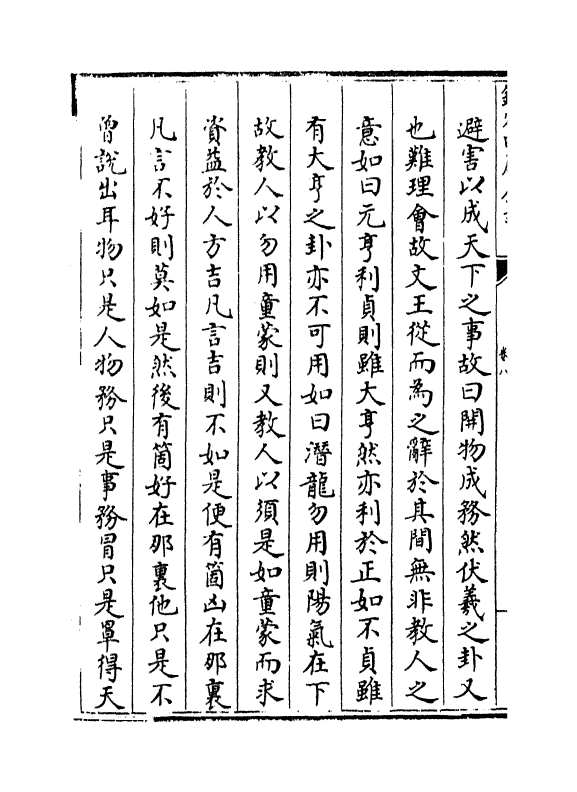 避害以成天下之事故曰開物成務然伏羲之卦又
也難理會故文王從而為之辭於其間無非教人之
意如曰元亨利貞則雖大亨然亦利於正如不貞雖
有大亨之卦亦不可用如曰潛龍勿用則陽氣在下
故教人以勿用童蒙則又教人以須是如童蒙而求
資益於人方吉凡言吉則不如是便有箇凶在那裏
凡言不好則莫如是然後有箇好在那裏他只是不
曾說出耳物只是人物務只是事務冒只是罩得天
卷八